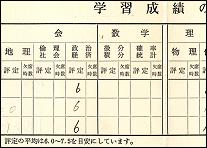 学習成績の
会 数学 理
地理 倫理社会 政治経済 微分積分 確率統計 物理
評定 欠席時数 評定 欠席時数 評定 欠席時数 評定 欠席時数 評定 欠席時数 評定
6
0
1 6
評定の平均は6.0～7.5を目安にしています。